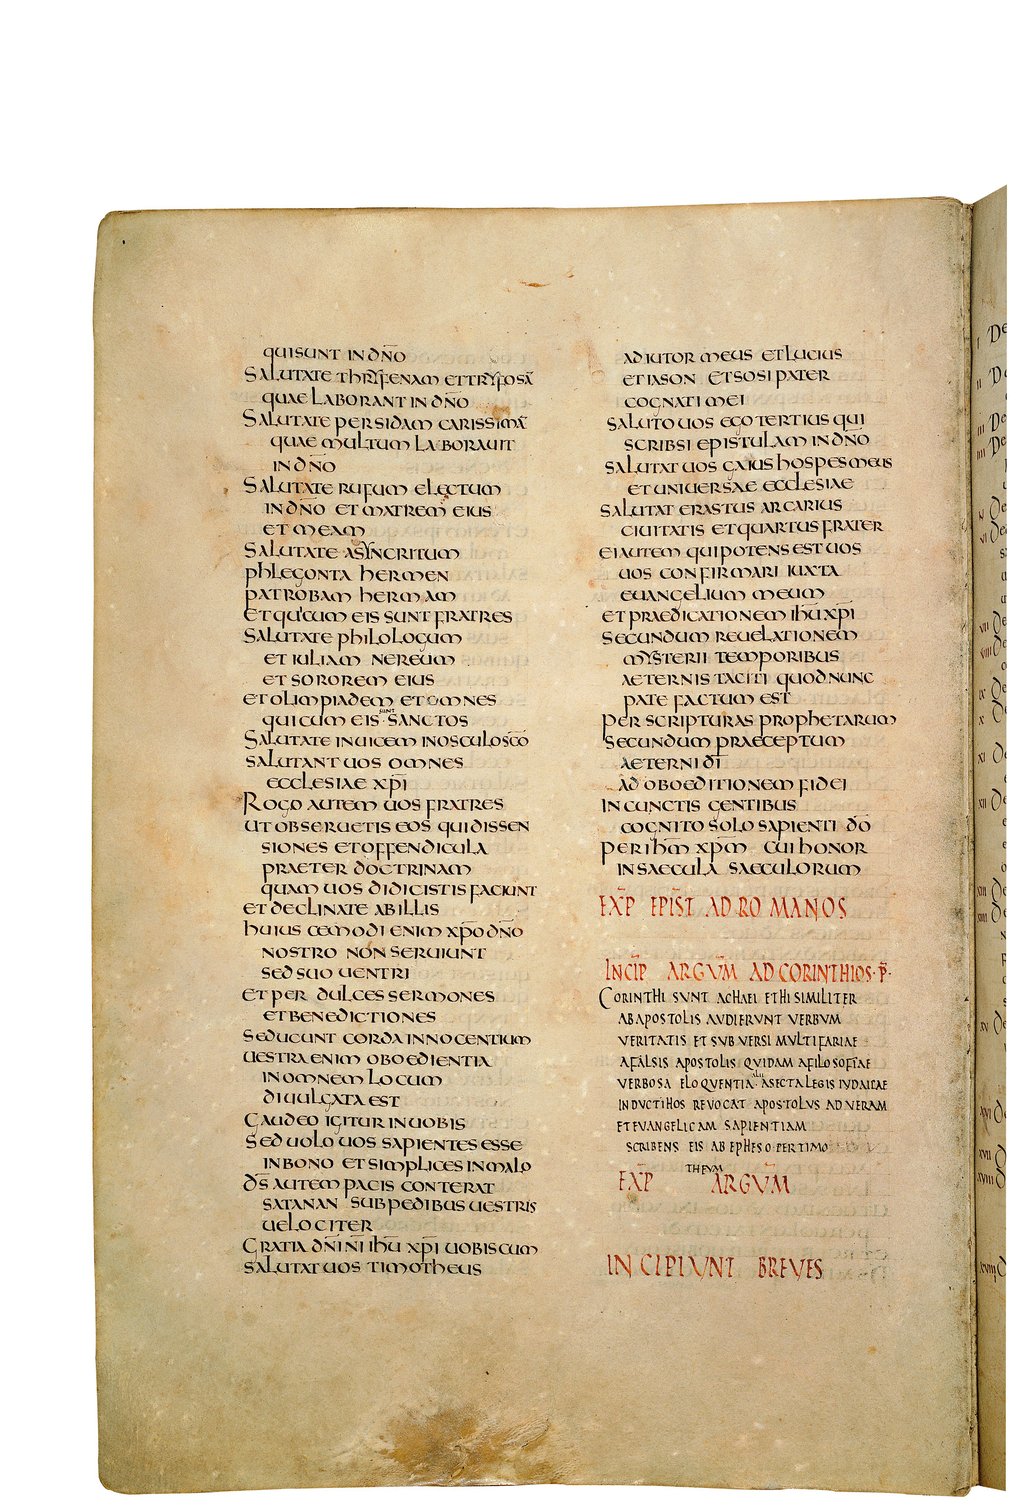 qui sunt in dn̅o
Salutate thryfenam et tryfosa̅
quae laborant in dn̅o
Salutate persidam carissima̅
quae multum laborauit
in dn̅o
Salutate rufum electum
in dn̅o et matrem eius
et meam
Salutate asyncritum
phlegonta hermen
patrobam hermam
et qui cum eis sunt fratres
Salutate philologum
et iuliam nereum
et sororem eius
et olimpiadem et omnes
qui cum eis sunt sanctos
Salutate inuicem in osculo sc̅o
Salutant uos omnes
ecclesiae xp̅i
Rogo autem uos fratres
ut obseruetis eos qui dissen
siones et offendicula
praeter doctrinam
quam uos didicistis faciunt
et declinate ab illis
huius cemodi enim xp̅o dn̅o
nostro non seruiunt
sed suo uentri
et per dulces sermones
et benedictiones
seducunt corda innocentium
uestra enim oboedientia
in omnem locum
diuulgata est
Gaudeo igitur in uobis
Sed uolo uos sapientes esse
in bono et simplices in malo
d̅s autem pacis conterat
satanan sub pedibus uestris
uelociter
Gratia dn̅i n̅i ihu̅ xp̅i uobiscum
salutat uos timotheus
adiutor meus et lucius
et iason et sosipater
cognati mei
saluto uos ego tertius qui
scribsi epistulam in dn̅o
salutat uos gaius hospes meus
et uniuersae ecclesiae
salutat erastus arcarius
ciuitatis et quartus frater
ei autem qui potens est uos
uos confirmari iuxta
euangelium meum
et praedicationem ihu̅ xp̅i
secundum reuelationem
mysterii temporibus
aeternis taciti quod nunc
pate factum est
per scripturas prophetarum
secundum praeceptum
aeterni d̅i
ad oboeditionem fidei
in cunctis gentibus
cognito solo sapienti d̅o
per ihm̅ xpm̅ cui honor
in saecula saeculorum
EXP̅ EPIST̅ AD ROMANOS
INCIP̅ ARGUM̅ AD CORINTHIOS·P̅·
CORINTHI SUNT ACHAEI ET HI SIMILITER
AB APOSTOLIS AUDIERUNT VERBUM
VERITATIS ET SUBVERSI MULTIFARIAE
A FALSIS APOSTOLIS QUIDAM A FILOSOFIAE
VERBOSA ELOQUENTIA alii A SECTA LEGIS IUDAICAE
INDUCTI HOS REVOCAT APOSTOLUS AD VERAM
ET EVANGELICAM SAPIENTIAM
SCRIBENS EIS AB EPHESO PER TIMO
THEUM
EXP̅ ARGUM̅
INCIPIUNT BREVES